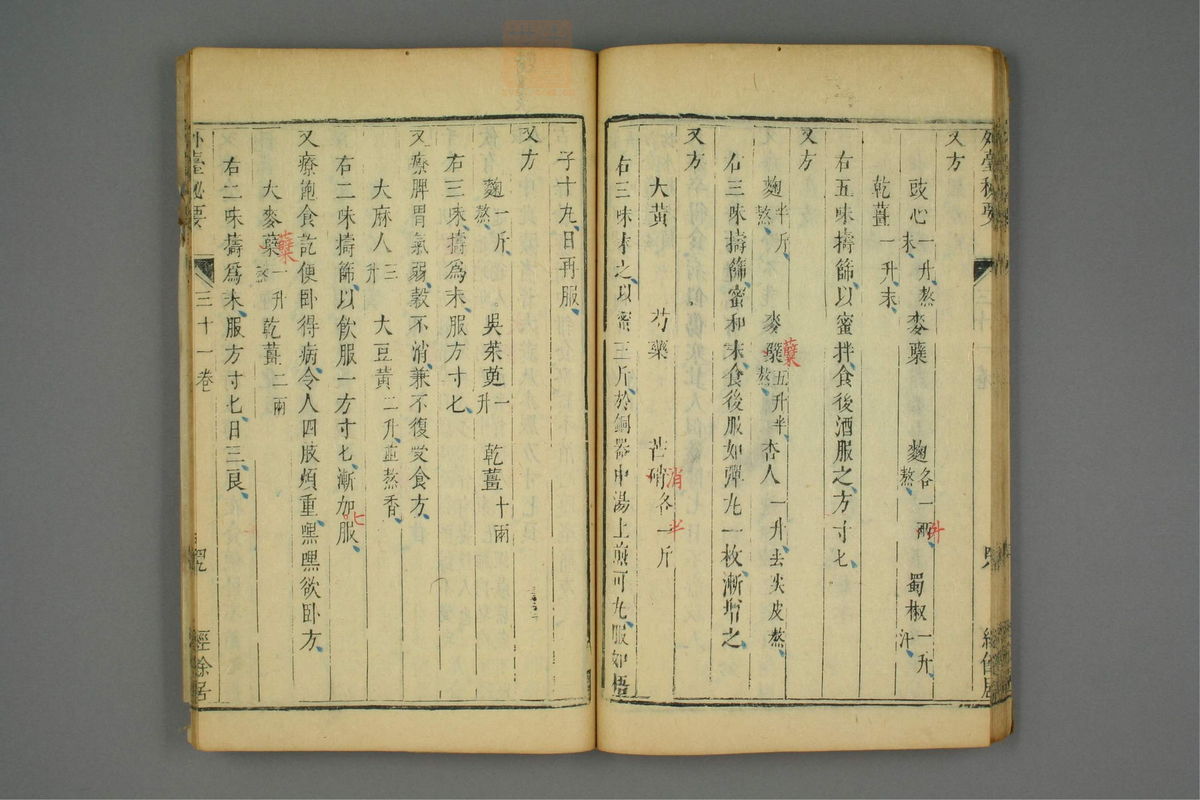 又方
豉心一升熬末 麥糵 麴各一兩熬 蜀椒一升汗
升
乾薑一升末
右五味擣篩以蜜拌食後酒服之方寸匕
又方
麴半斤熬 麥糵五升半熬 杏人一升去尖皮熬
糵
右三味擣篩蜜和末食後服如彈丸一枚漸增之
又方
大黃 芍藥 芒硝各一斤
消 半
右三味末之以蜜三斤於銅器中湯上煎可丸服如梧
外臺秘要 三十一卷 經餘居
子十九日再服
又方
麴一斤熬 吳茱萸一升 乾薑十兩
右三味擣為末服方寸匕
又療脾胃氣弱穀不消兼不復受食方
大麻人三升 大豆黃二升並熬香
右二味擣篩以飲服一方寸匕漸加服
七
又療飽食訖便臥得病令人四肢煩重嘿嘿欲臥方
大麥糵一升熬 乾薑二兩
糵
右二味擣為末服方寸匕日三良
外臺秘要 三十一卷 經餘居